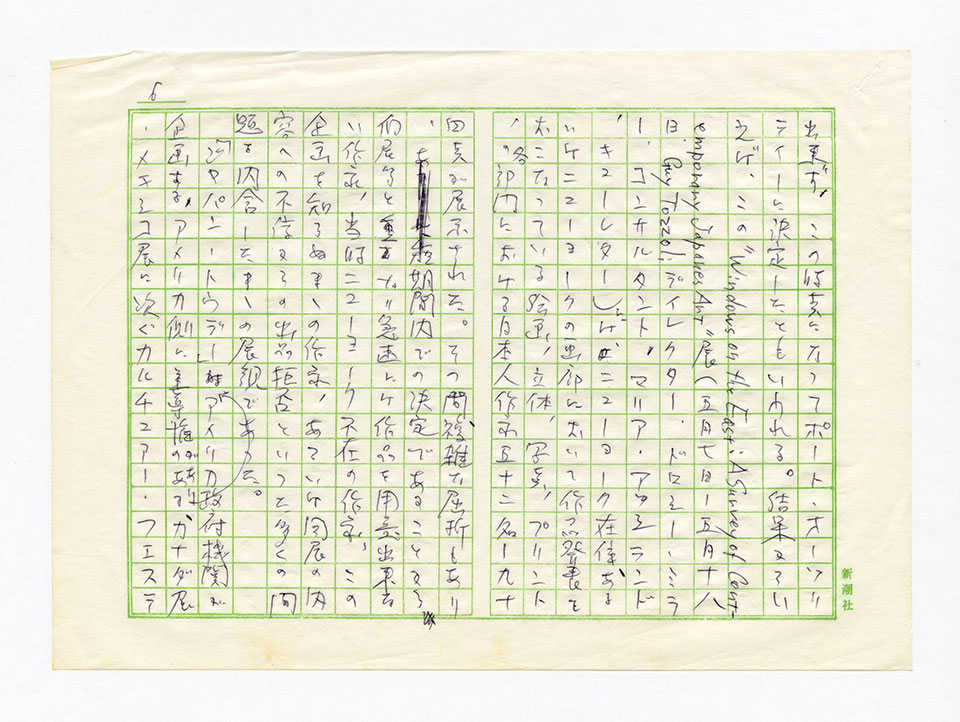 6
出来ず、この時点になってポート・オーソリ
ティーに決定したともいわれる。結果からい
えば、この“Windows on the East: A Survey of Cont-
emporary Japanese Art”展(五月七日ー五月十八
日 Guy Tozzoli ディレクター・ドロシー・ミラ
ー、コンサルタント、マリア・
キューレター)はニューヨーク在住ある
いはニューヨークの画廊において作品発表を
おこなっている絵画、立体、写真、プリント
の各部門における日本人作家五十二名ー九十
四点が展示された。その間複雑な屈折もあり
、短期間内での決定であることから
個展等と重なり急速には作品を用意出来な
い作家、当時ニューヨーク不在の作家、この
企画を知らぬままの作家、あるいは同展の内
容への不信からの出品拒否といった多くの問
題を内含したままの展観であった。
「ジャパン・トゥデー」アメリカ政府機関が
企画する、アメリカ側に主導権のあるカナダ展
、メキシコ展に次ぐカルチュアー・フェステ
新潮社